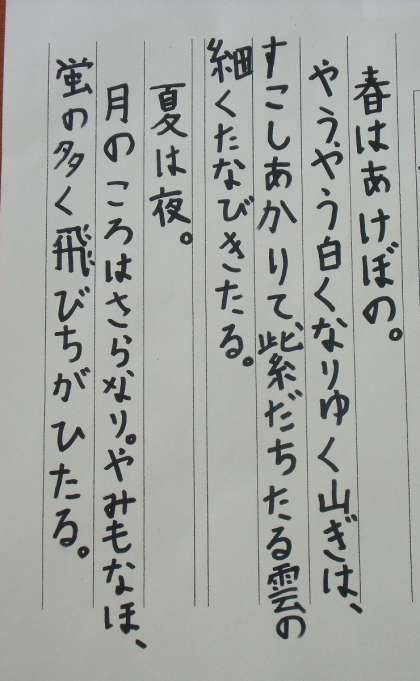 春はあけぼの。
やうやう白くなりゆく山ぎは、
すこしあかりて、紫だちたる雲の
細くたなびきたる。
夏は夜。
月のころはさらなり。やみもなほ、
蛍の多く飛びちがひたる。